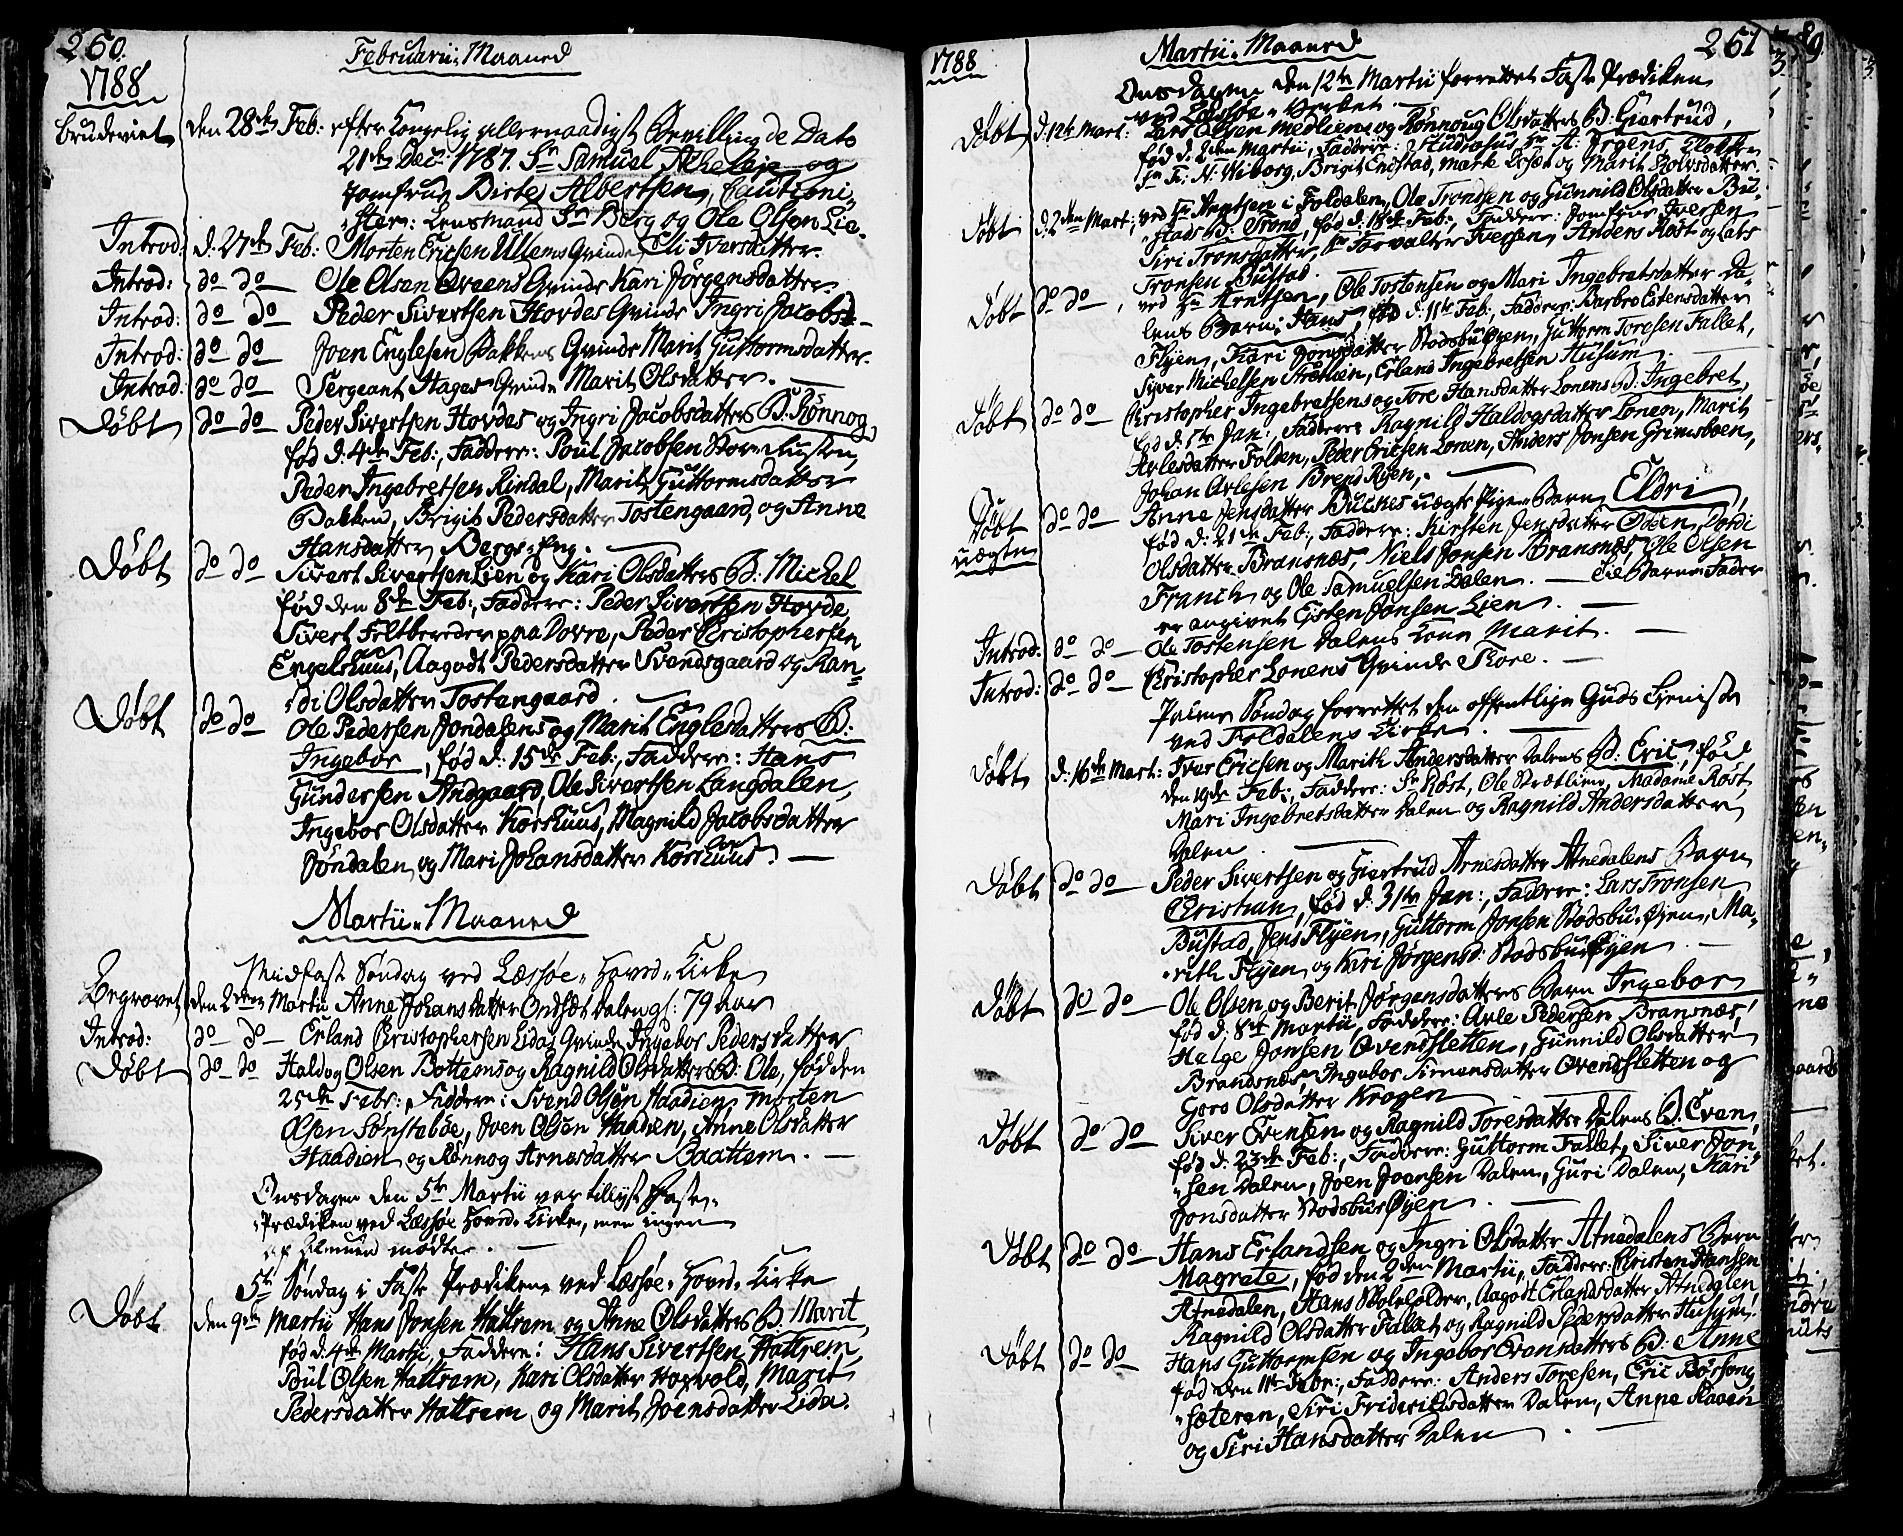 260.
1788
Februarii Maaned
Brudeviet den 28de Feb: efter Kongelig allernaadigst Bevilling de Dato
21de Dec: 1787. Sr Samuel og
Jomfrue Birte Albertsen, Cautioni-
ster: Lensmand Sr Berg og Ole Olsen Lie.
Introd: d: 27de Feb: Morten Ericsen Ullems Qvinde Eli Iversdatter.
Introd: do do Ole Olsen Qvinde Kari Jörgensdatter.
Introd: do do Peder Sivertsen Hovdes Qvinde Ingri Jacobsd
Introd: do do Joen Englesen Bakkens Qvinde Marit Guttormsdatter.
Introd: do do Sergeant Hages Qvinde Marit Olsdatter.
Döbt do do Peder Sivertsen Hovdes og Ingri Jacobsdatters B: Rönnog,
fød d: 4de Feb:, Faddere: Poul Jacobsen
Peder Ingebretsen Rindal, Marit Guttormsdatter
Bakken, Brigit Pedersdatter Tostengaard, og Anne
Hansdatter Bergs-Eng.
Döbt do do Sivert Sivertsen Lien og Kari Olsdatters B: Michel
fød den 8de Feb:, Faddere: Peder Sivertsen Hovde,
Sivert Feltbereder paa Dovre, Peder Christophersen
Engelshuus, Aagodt Pedersdatter Svendsgaard og Ran-
di Olsdatter Tostengaard.
Döbt do do Ole Pedersen Jöndalens og Marit Englesdatters B:
Ingebor, fød d: 15de Feb:, Faddere: Hans
Gundersen Andgaard, Ole Sivertsen Langdalen,
Ingebor Olsdatter Korshuus, Magnild Jacobsdatter
Jöndalen og Mari Johansdatter Korshuus.
Martii Maaned
Midfaste Söndag ved Læssöe Hoved-Kirke
Begravet den 2den Martii Anne Johansdatter dalen gl: 79 aar
Introd: do do Erland Christophersen Lidas Qvinde Ingebor Pedersdatter
Döbt do do Haldog Olsen Bottems og Ragnild Olsdatters B: Ole, fød den
25de Febr:, Faddere: Svend Olsen Haadien, Morten
Olsen Sönsteböe, Joen Olsen Haadien, Anne Olsdatter
Haadien og Rönnog Arnesdatter Baattem.
Onsdagen den 5te Martii var tillyst Faste-
Prædiken ved Læssöe Hoved-Kirke, men ingen
af Almuen mödte.
5te Söndag i Faste Prædiken ved Læssöe Hoved-Kirke
Döbt den 9de Martii Hans Jonsen Hattrem og Anne Olsdatters B: Marit,
fød d: 4de Martii, Faddere: Hans Sivertsen Hattrem,
Poul Olsen Hattrem, Kari Olsdatter Horvold, Marit
Pedersdatter Hattrem og Marit Joensdatter Lida.
1788
Martii Maaned
261
Onsdagen den 12te Martii forrettet Faste Prædiken
ved Læssöe Verket.
Döbt d: 12te Mart: Lars Olsen Medliens og Rönnoug Olsdatters B: Giertrud,
fød d: 2den Martii, Faddere:
Sr N: Wiborg, Brigit Endstad, og Marit
Döbt d: 2den Mart: ved Hr Arntsen i Foldalen, Ole Tronsen og Gunnild Olsdatter Bu-
stads B: Trond, fød d: 18de Feb:, Faddere: Jomfrue Iversen
Siri Tronsdatter, Hr Forvalter Iversen, Anders Röst og Lars
Tronsen Bustad.
Döbt do do, ved Hr Arntsen, Ole Tostensen og Mari Ingebretsdatter Da-
lens Barn: Hans, fød d: 11te Feb:, Faddere: Barbro Estensdatter
Flyen, Kari Jonsdatter Stodsbuöyen, Guttorm Toresen Fallet,
Syver Michelsen, Erland Ingebretsen Husum.
Döbt do do Christopher Ingebretsens og Tore Hansdatter Lonens B: Ingebret,
fød d: 5te Jan:, Faddere: Ragnild Haldogsdatter Lonen, Marit
Arlesdatter Folsen, Peder Ericsen Lonen, Anders Jonsen Grimsboen,
Johan Arlesen
Döbt uægte do do Anne Jensdatter uægte Pige Barn Eldri,
fød d: 21de Feb:, Faddere: Kirsten Jensdatter Odden, Dordi
Olsdatter Bransnæs, Niels Jonsen Bransnæs, Ole Olsen
Franch og Ole Samuelsen Dalen. Til Barne-Fader
er angivet Eisten Jonsen Lien.
Introd: do do Ole Tostensen Dalens Kone Marit.
Introd: do do Christopher Lonens Qvinde Tore.
Palme Söndag forrettet den offentlige Guds Tieniste
ved Foldalens Kirke.
Döbt d: 16de Mart: Iver Ericsen og Marith Andersdatter Dalens B: Eric, fød
den 19de Feb:, Faddere: Sr Röst, Ole Strætlien, Madame Röst,
Mari Ingebretsdatter Dalen og Ragnild Andersdatter
Dalen.
Döbt do do Peder Sivertsen og Giertrud Arnesdatter Atnedalens Barn
Christian, fød d: 31te Jan:, Faddere: Lars Tronsen
Bustad, Jens Flyen, Guttorm Jonsen Stodsbu-Øyen, Ma-
rith Flyen og Kari Jörgensd: Stodsbu-Øyen.
Döbt do do Ole Olsen og Berit Jörgensdatters Barn Ingebor
fød d: 8de Martii, Faddere: Arle Pedersen Bransnæs,
Helge Jonsen Qvendsletten, Gunnild Olsdatter
Brandsnæs, Ingebor Simensdatter Qvendsletten og
Goro Olsdatter Krogen.
Döbt do do Siver Evensen og Ragnild Toresdatter Dalens B: Even,
fød d: 23de Feb:, Faddere: Guttorm Fallet, Siver Jon-
sen Dalen, Joen Joensen Dalen, Guri Dalen, Kari
Jonsdatter Stodsbu-Øyen.
Döbt do do Hans Erlandsen og Ingri Olsdatter Atnedalens Barn
Magrete, fød den 2den Martii, Faddere: Christen Hansen
Atnedalen, Hans Skoleholder, Aagodt Erlandsdatter Atnedalen,
Ragnild Olsdatter Fallet og Ragnild Pedersdatter Husum.
Döbt do do Hans Guttormsen og Ingebor Evensdatters B: Anne
fød den 11te Febr:, Faddere: Anders Toresen, Eric Börsong-
sæteren, Siri Friderichsdatter Dalen, Anne Raaen
og Siri Hansdatter Dalen.